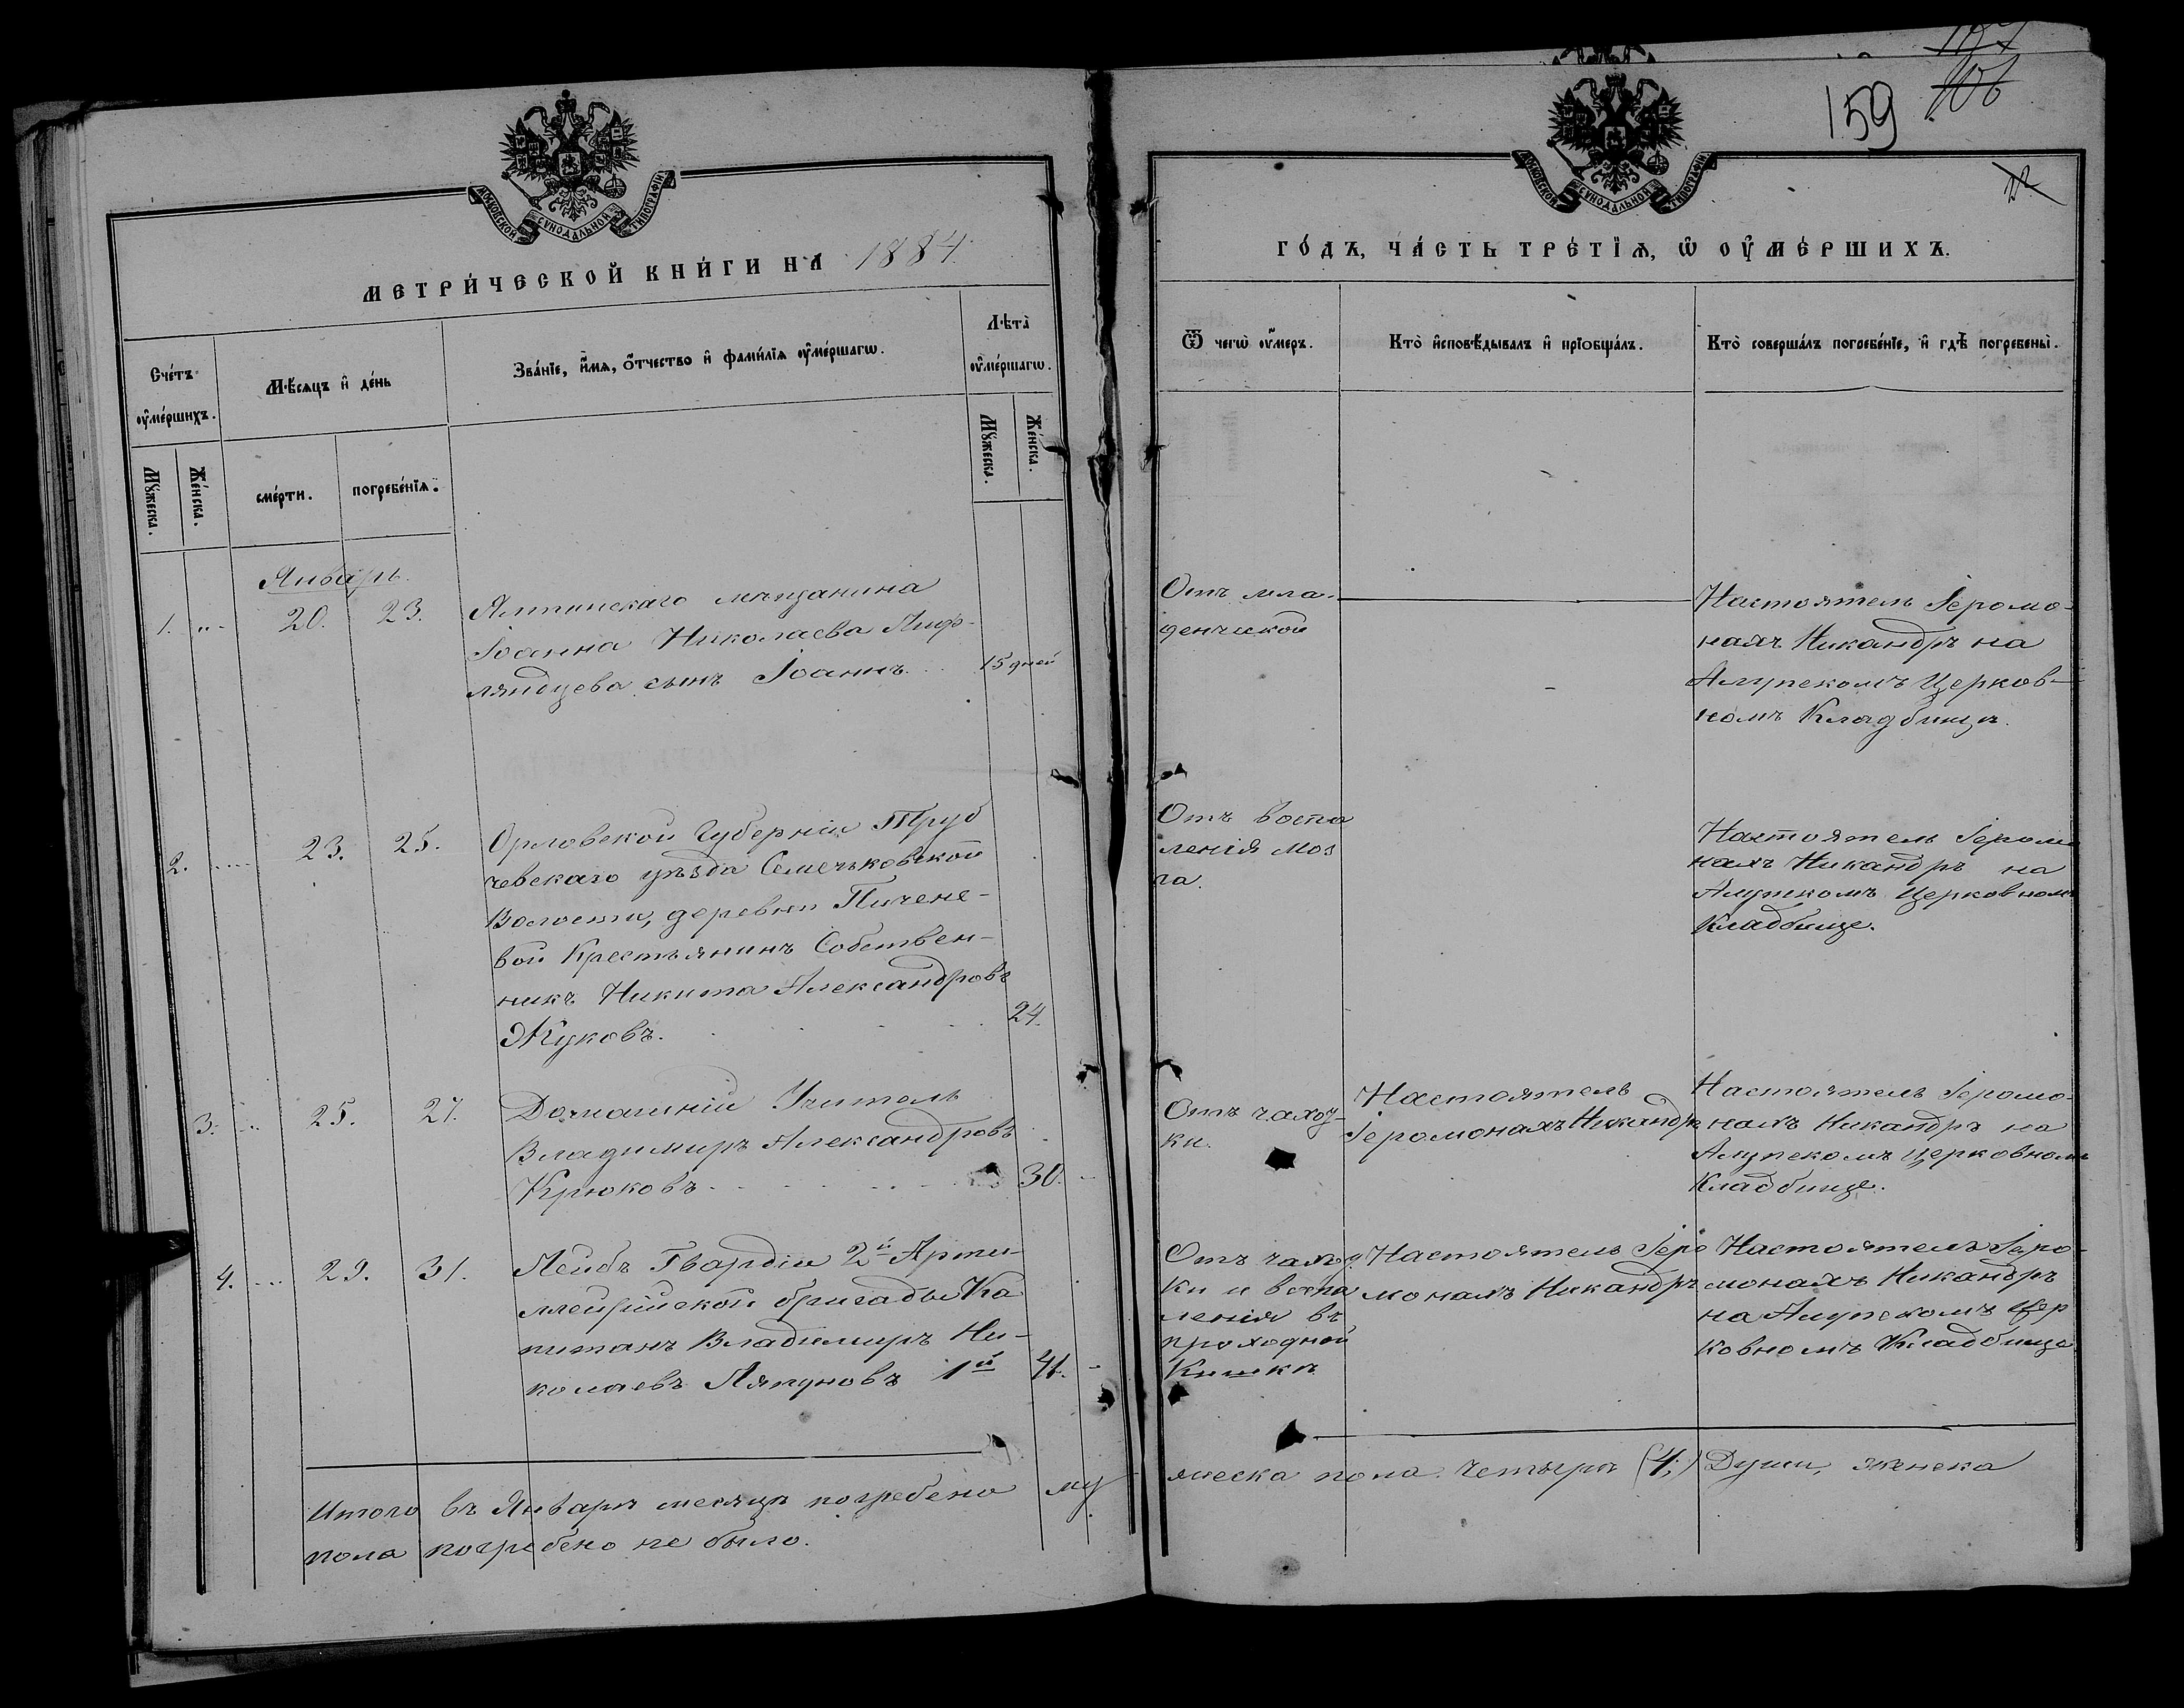 МОСКОВСКОЙ СѴНОДАЛЬНОЙ ТИПОГРАФІИ
МЕТРИ́ЧЕСКОЙ КНИ́ГИ НА 1884.
Сче́тъ ᲂу҆ме́ршихъ.
Мꙋ́жеска.
Же́нска.
Мѣ́сяцъ и҆ де́нь
сме́рти.
погребе́нїѧ.
Зва́нїе, и҆́мѧ, ѻ҆́тчество и҆ фами́лїѧ ᲂу҆ме́ршагѡ.
Лѣ́та ᲂу҆ме́ршагѡ.
Мꙋ́жеска.
Же́нска.
Январь.
1. 20. 23.
Ялтинскаго мѣщанина
Іоанна Николаева Лиф-
ляндцева сынъ Іоаннъ. 15 дней
2. 23. 25.
Орловской Губерніи Труб
чевскаго уѣзда Семечьковской
Волости, деревни Пичене-
вой Крестьянинъ Собствен-
никъ Никита Александровъ
Жуковъ. 24.
3. 25. 27.
Домашній Учитель
Владимиръ Александровъ
Крюковъ 30.
4. 29. 31.
Лейбъ Гвардіи 2й Арти-
ллерійской бригады Ка
питанъ Владимиръ Ни-
колаевъ Ляпуновъ 1й 41.
Итого въ Январѣ месяцѣ погребено му
пола погребено не было.
159
106
МОСКОВСКОЙ СѴНОДАЛЬНОЙ ТИПОГРАФІИ
ГО́ДЪ, ЧА́СТЬ ТРЕ́ТЇѦ, Ѡ҆ ОУ҆МЕ́РШИХЪ.
Ѿ чегѡ̀ ᲂу҆́меръ.
Кто̀ и҆сповѣ́дывалъ и҆ прїобща́лъ.
Кто̀ соверша́лъ погребе́нїе, и҆ гдѣ̀ погребены̀.
Отъ мла-
денческой
Настоятель Іеромо-
нахъ Никандръ на
Алупскомъ Церков-
номъ Кладбищѣ.
Отъ воспа
ленія моз
га.
Настоятель Іеромо
нахъ Никандръ на
Алупскомъ Церковномъ
Кладбище.
Отъ чахот-
ки.
Настоятель
Іеромонахъ Никандръ
Настоятель Іеромо-
нахъ Никандръ на
Алупскомъ Церковномъ
Кладбище.
Отъ чахот
ки и воспа
ленія въ
проходной
Кишкѣ
Настоятель Іеро
монахъ Никандръ
Настоятель Іеро-
монахъ Никандръ
на Алупскомъ Цер
ковномъ Кладбище.
жеска пола четыре (4,) Души, женска